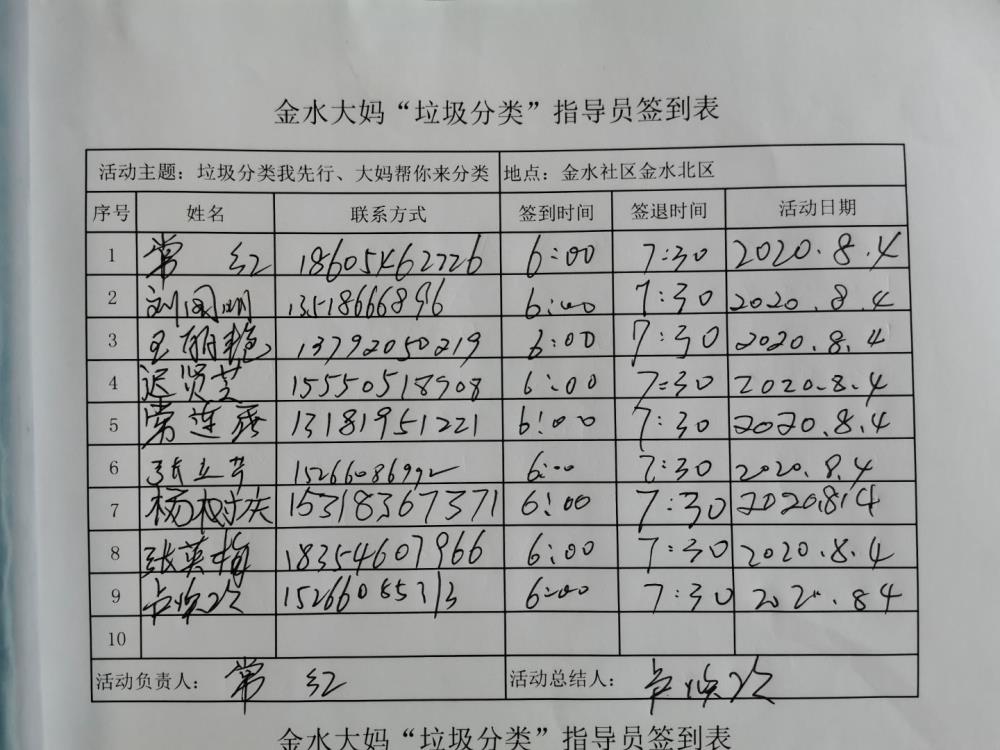 金水大妈“垃圾分类”指导员签到表
活动主题：垃圾分类我先行、大妈帮你来分类 地点：金水社区金水北区
序号 姓名 联系方式 签到时间 签退时间 活动日期
1 常红 18605462226 6:00 7:30 2020.8.4
2 刘国明 13518666896 6:00 7:30 2020.8.4
3 王丽艳 13792050219 6:00 7:30 2020.8.4
4 迟贤芝 15550518908 6:00 7:30 2020.8.4
5 常连 13181951221 6:00 7:30 2020.8.4
6 张立芹 6:00 7:30 2020.8.4
7 杨树庆 15318367371 6:00 7:30 2020.8.4
8 张英梅 18354607966 6:00 7:30 2020.8.4
9 6:00 7:30 2020.84
10
活动负责人：常红 活动总结人：
金水大妈“垃圾分类”指导员签到表